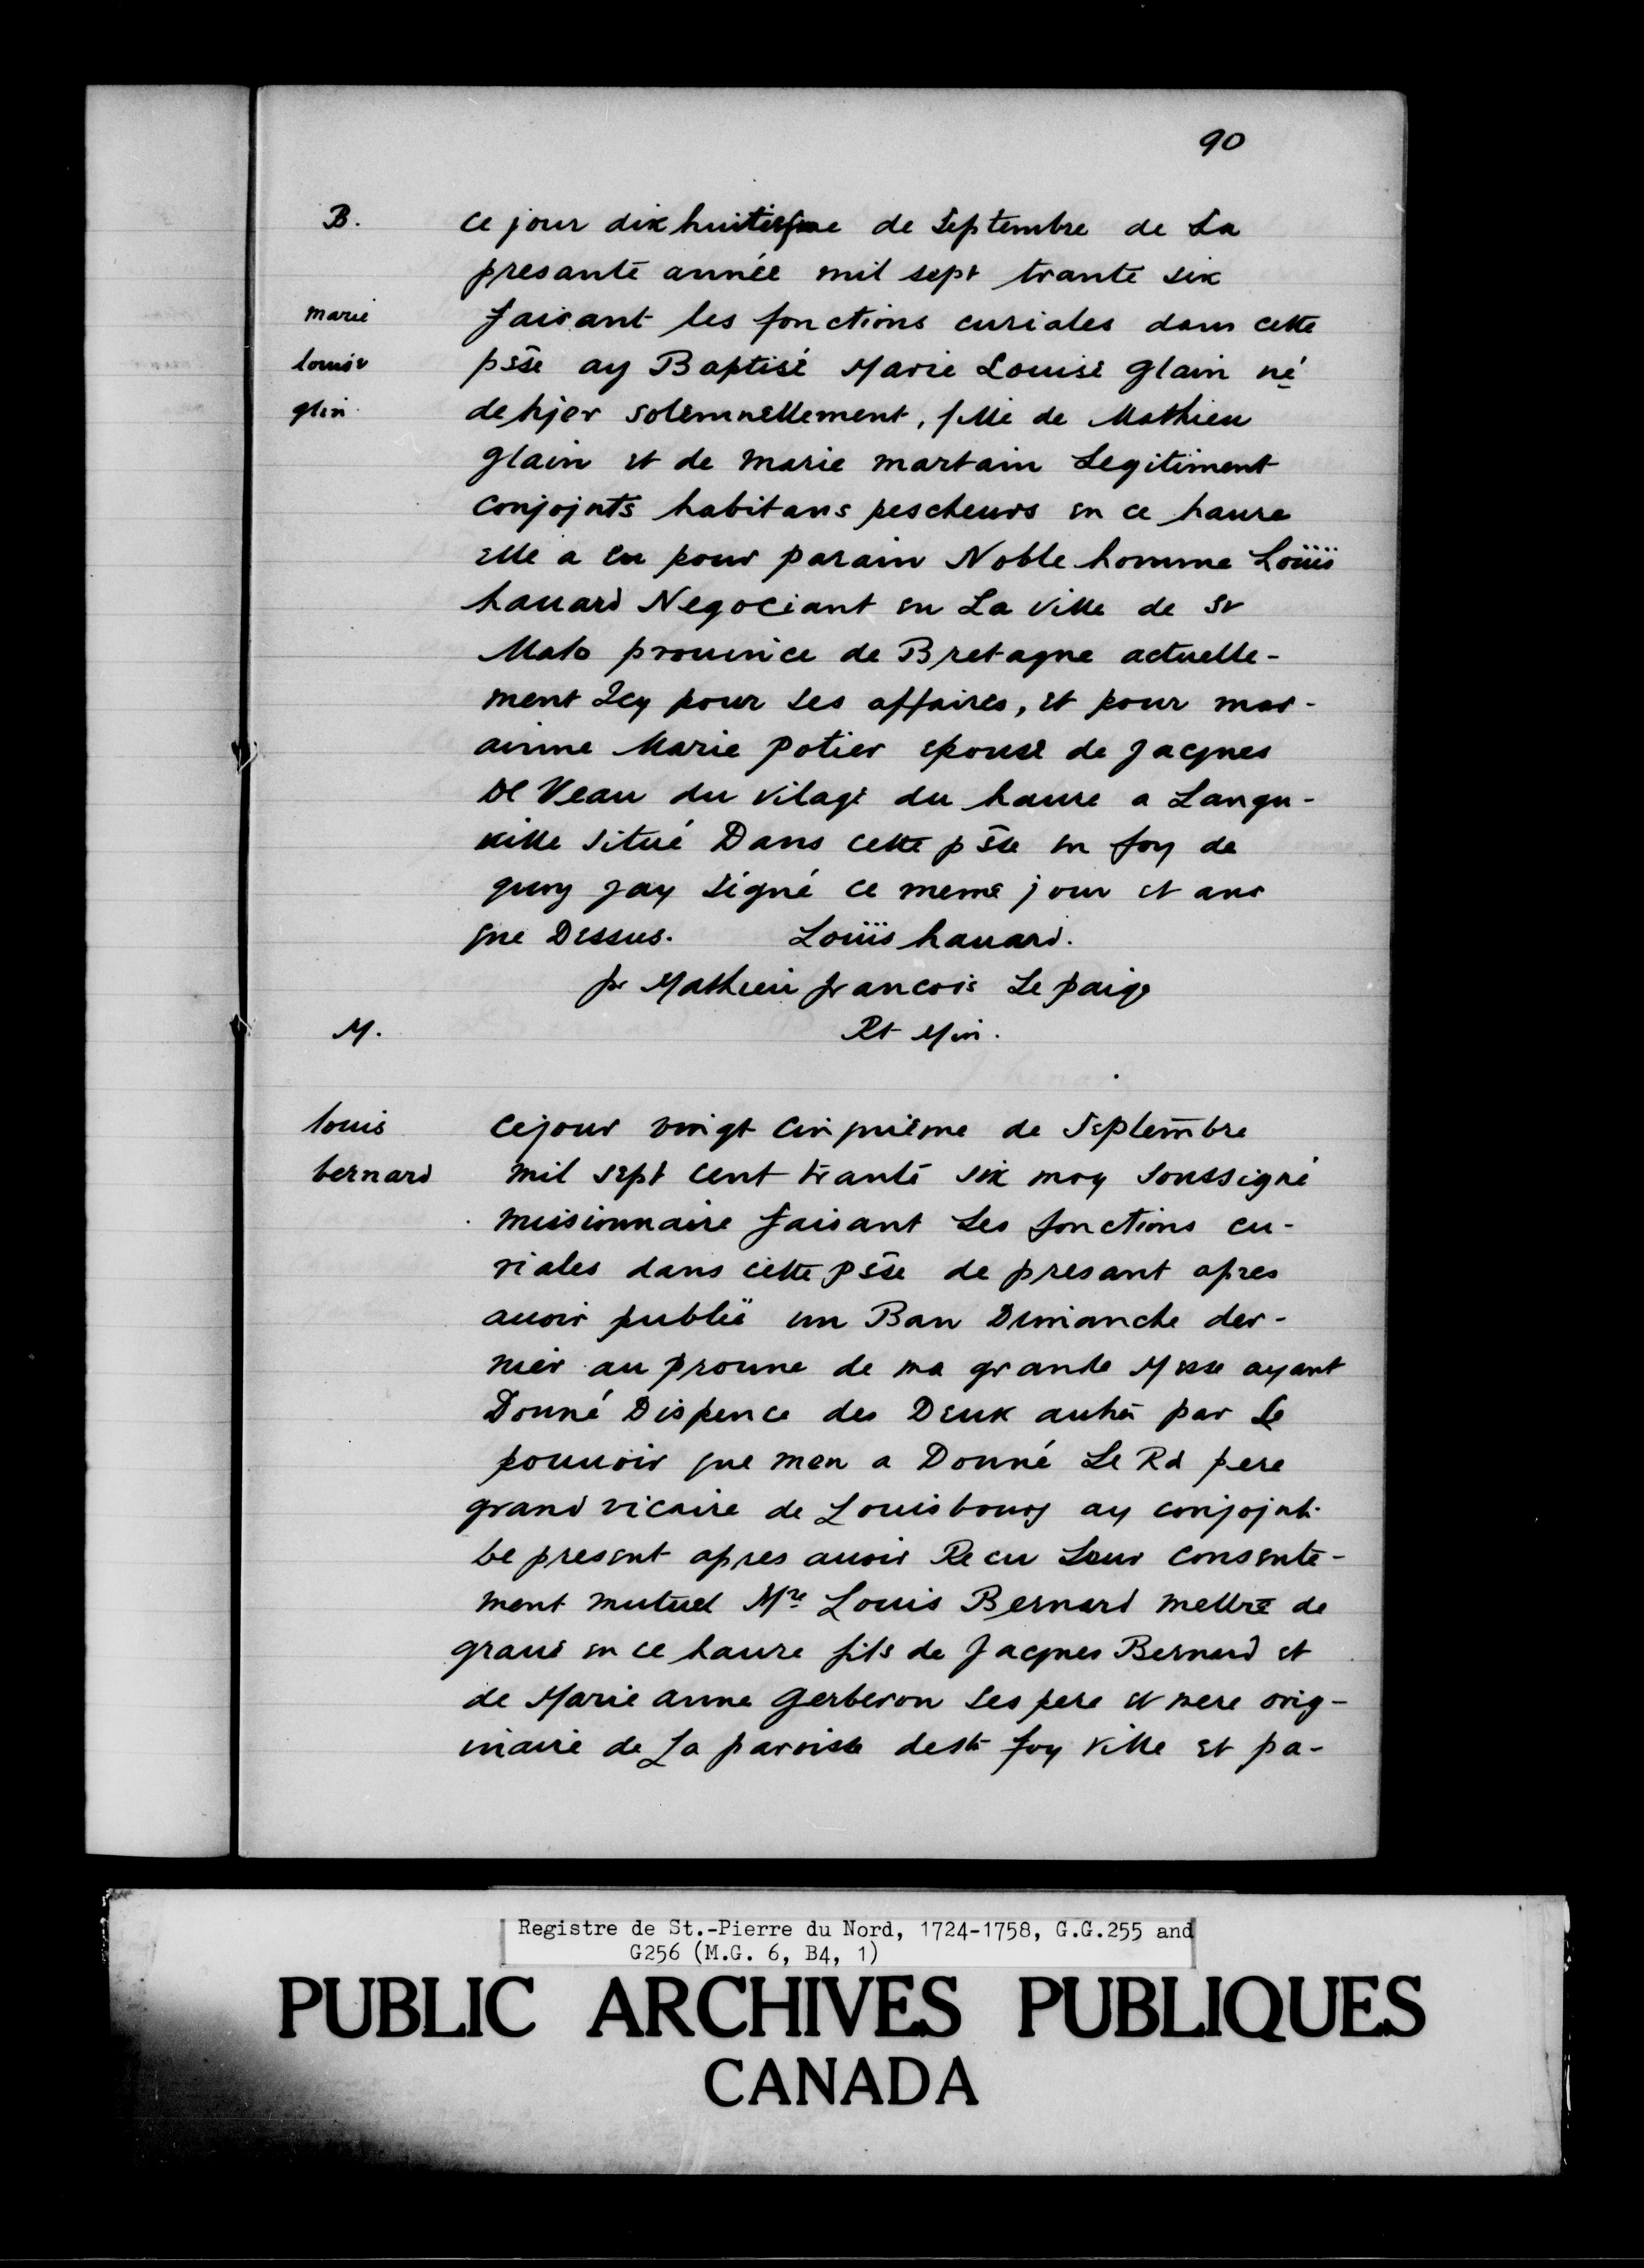 90
B. ce jour dix huitiesme de Septembre de La
presante année mil sept trante six
marie faisant les fonctions curiales dans cette
louise psse ay Baptisé Marie Louise glain né
glin dehjer solemnellement, fille de Mathieu
glain et de marie martain Legitiment
conjojnts habitans pescheurs en ce haure
elle a eu pour parain Noble homme Loüis
hauard Negociant en La ville de st
Malo prouince de Bretagne actuelle-
ment Icy pour ses affaires, et pour mar-
ainne Marie potier epouse de Jacques
De Veau du vilage du haure a Langu-
ille situé Dans cette psse en foy de
quoy jay signé ce meme jour et ans
que Dessus. Loüis hauard.
fr Mathieu francois Le paige
M. Rt Min.
louis Cejour vingt cinquiême de Septembre
bernard mil sept cent trante six moy soussigné
missionnaire faisant Les fonctions cu-
riales dans cette psse de presant apres
auoir publiё un Ban Dimanche der-
nier au proune de ma grande Messe ayant
Donné Dispence des Deux autres par Le
pouuoir que men a Donné Le Rd pere
grand vicaire de Louisbourg ay conjojnt
be present apres auoir Recu Leur consente-
ment mutuel Mre Louis Bernard mettre de
graue en ce haure fils de Jacques Bernard et
de Marie anne gerberon ses pere et mere orig-
inaire de La paroisse de ste foy ville et pa-
Registre de St.-Pierre du Nord, 1724-1758, G.G.255 and
G256 (M.G. 6, B4, 1)
PUBLIC ARCHIVES PUBLIQUES
CANADA